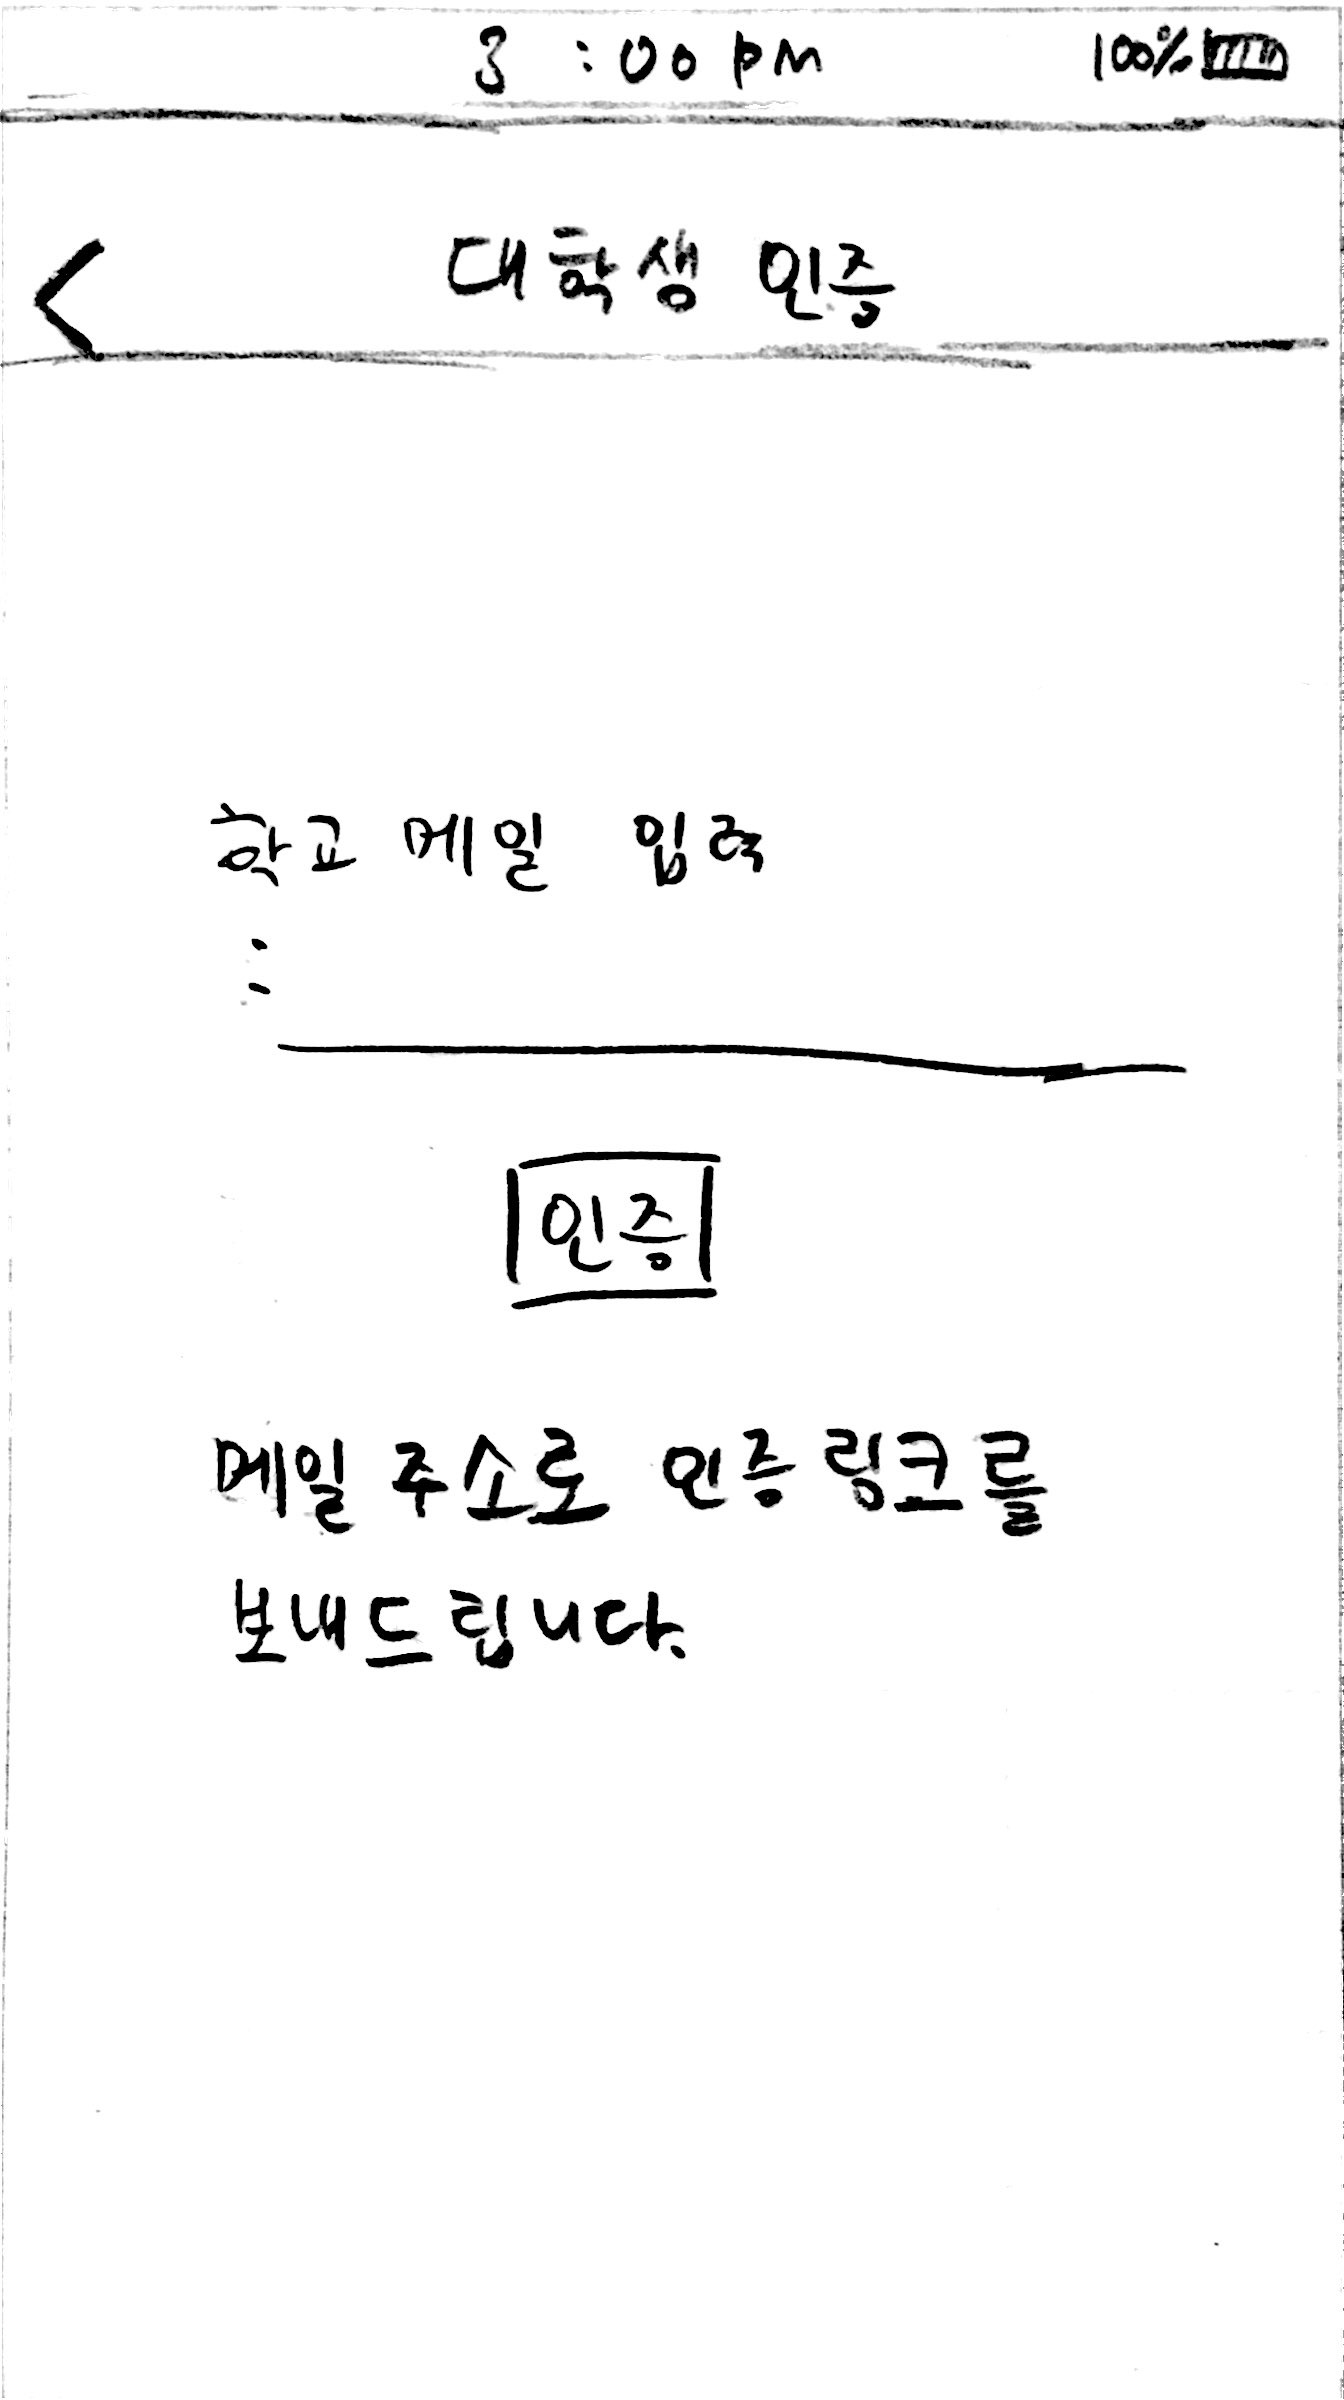 3 :00 pm 100%
< 대학생 인증
학교 메일 입력
:
인증
메일 주소로 인증 링크를
보내드립니다.